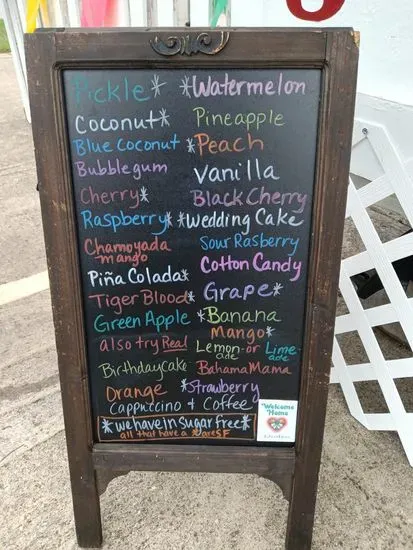 Pickle*
Coconut*
Blue Coconut
Bubblegum
Cherry*
Raspberry*
Chamoyada
mango
Piña Colada*
Tiger Blood*
Green Apple
also try Real
Birthdaycake
Orange
*Watermelon
Pineapple
*Peach
vanilla
Black Cherry
*Wedding Cake
Sour Rasberry
Cotton Candy
Grape*
*Banana
Mango*
Lemon-or Lime
ade ade
BahamaMama
*Strawberry
Cappuccino & Coffee
*we have in Sugar free*
all that have a * are SF
Welcome
Home